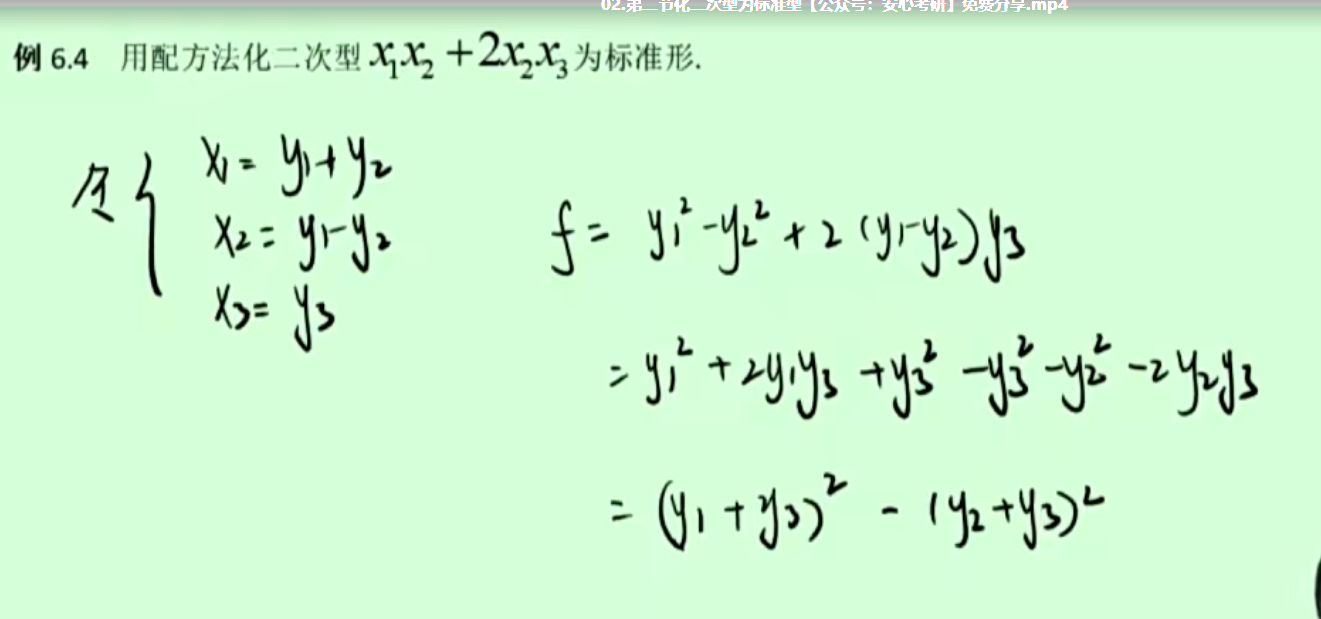 02.第二节化二次型为标准型【公众号：安心考研】免费分享.mp4
例 6.4 用配方法化二次型 x₁x₂ +2x₂x₃ 为标准形.
令 { x₁ = y₁+y₂
x₂ = y₁-y₂
x₃ = y₃
f = y₁² -y₂² + 2 (y₁-y₂)y₃
= y₁² + 2y₁y₃ +y₃² -y₃² -y₂² -2y₂y₃
= (y₁ + y₃)² - (y₂+y₃)²